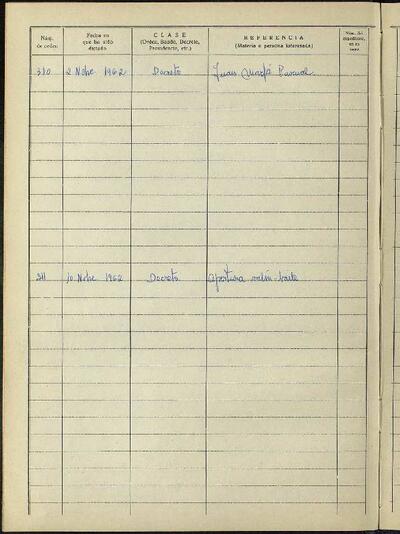 Núm. de orden
Fecha en que ha sido dictado
CLASE
(Orden, Bando, Decreto, Providencia, etc.)
REFERENCIA
(Materia o persona interesada)
Núm. del
310 2 Nbre 1962 Decreto Juan Pascual
311 10 Nbre 1962 Decreto Apertura baile